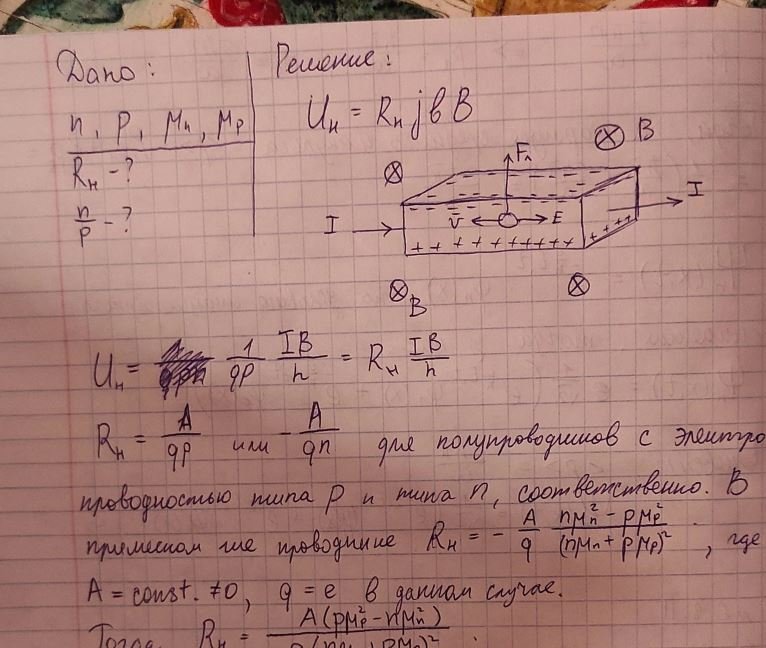 Дано:
Решение:
n, p, μₙ, μₚ
U_H = R_H j b B
R_H - ?
n/p - ?
⊗ B
⊗
Fл
I
I
v̄
E
+ + + + + + + + + + +
+ + + +
⊗ B
⊗
U_H = 1/qp IB/h = R_H IB/h
R_H = A/qp или - A/qn для полупроводников с электро
проводностью типа p и типа n, соответственно. В
примесном же проводнике R_H = - A/q (nμₙ² - pμₚ²)/(nμₙ + pμₚ)², где
A = const. ≠ 0, q = e в данном случае.
Тогда R_H = A(pμₚ² - nμₙ²)